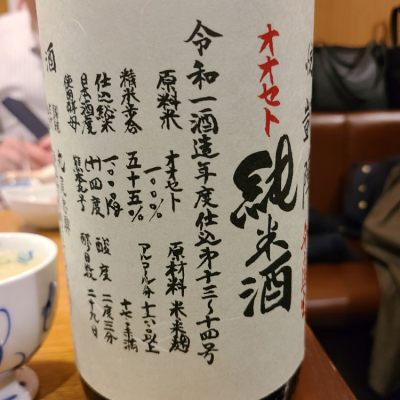 悦凱陣
オオセト
純米酒
令和一酒造年度仕込第十三〜十四号
原料米 オオセト 一〇〇%
原材料 米 米麹
精米歩合 五十五%
アルコール分 十六以上 十七未満
仕込総米 一〇〇〇kg
酸度 二度三分
日本酒度 (+)四度
醪日数 二十九日
使用酵母 熊本九号
酒